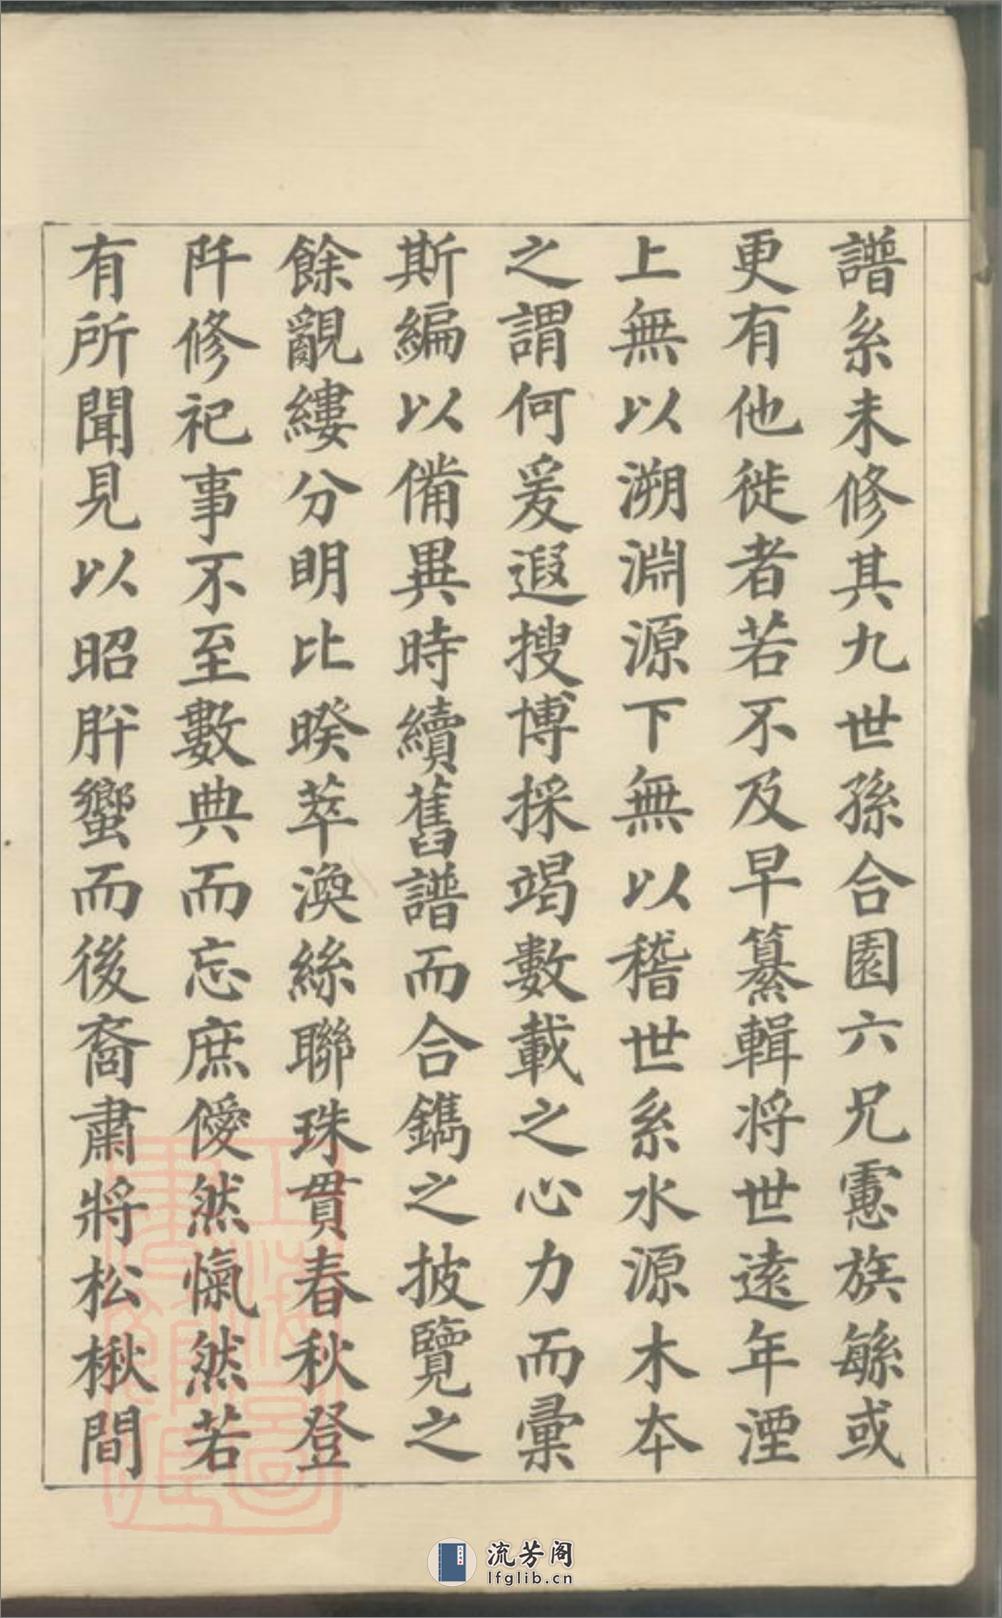 譜系未修其九世孫合園六兄慮族繇或
更有他徙者若不及早纂輯将世遠年湮
上無以溯淵源下無以稽世系水源木本
之謂何爰遐搜博採竭數載之心力而彙
斯編以備異時續舊譜而合鐫之披覽之
餘覶縷分明比暌萃渙絲聯珠貫春秋登
阡修祀事不至數典而忘庶僾然愾然若
有所聞見以昭肸蠁而後裔肅將松楸間
流芳阁
lfglib.cn